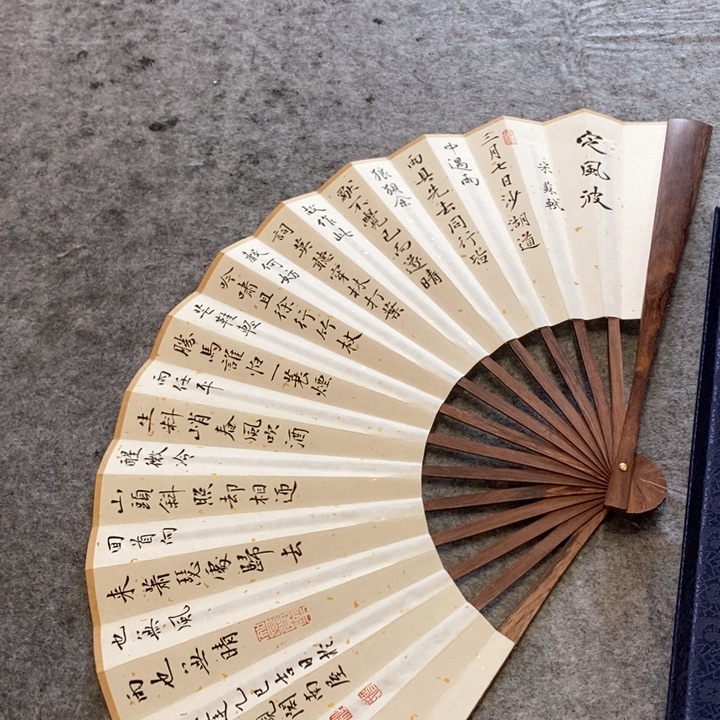 定風波
宋 蘇軾
三月七日沙湖道
中遇雨
雨具先去同行皆
狼狽余
獨不覺已而遂晴
故作此
詞莫聽穿林打葉
聲何妨
吟嘯且徐行竹杖
芒鞋輕
勝馬誰怕一蓑煙
雨任平
生料峭春風吹酒
醒微冷
山頭斜照却相迎
回首向
来蕭瑟處歸去
也無風
雨也無晴
乙巳吉日於